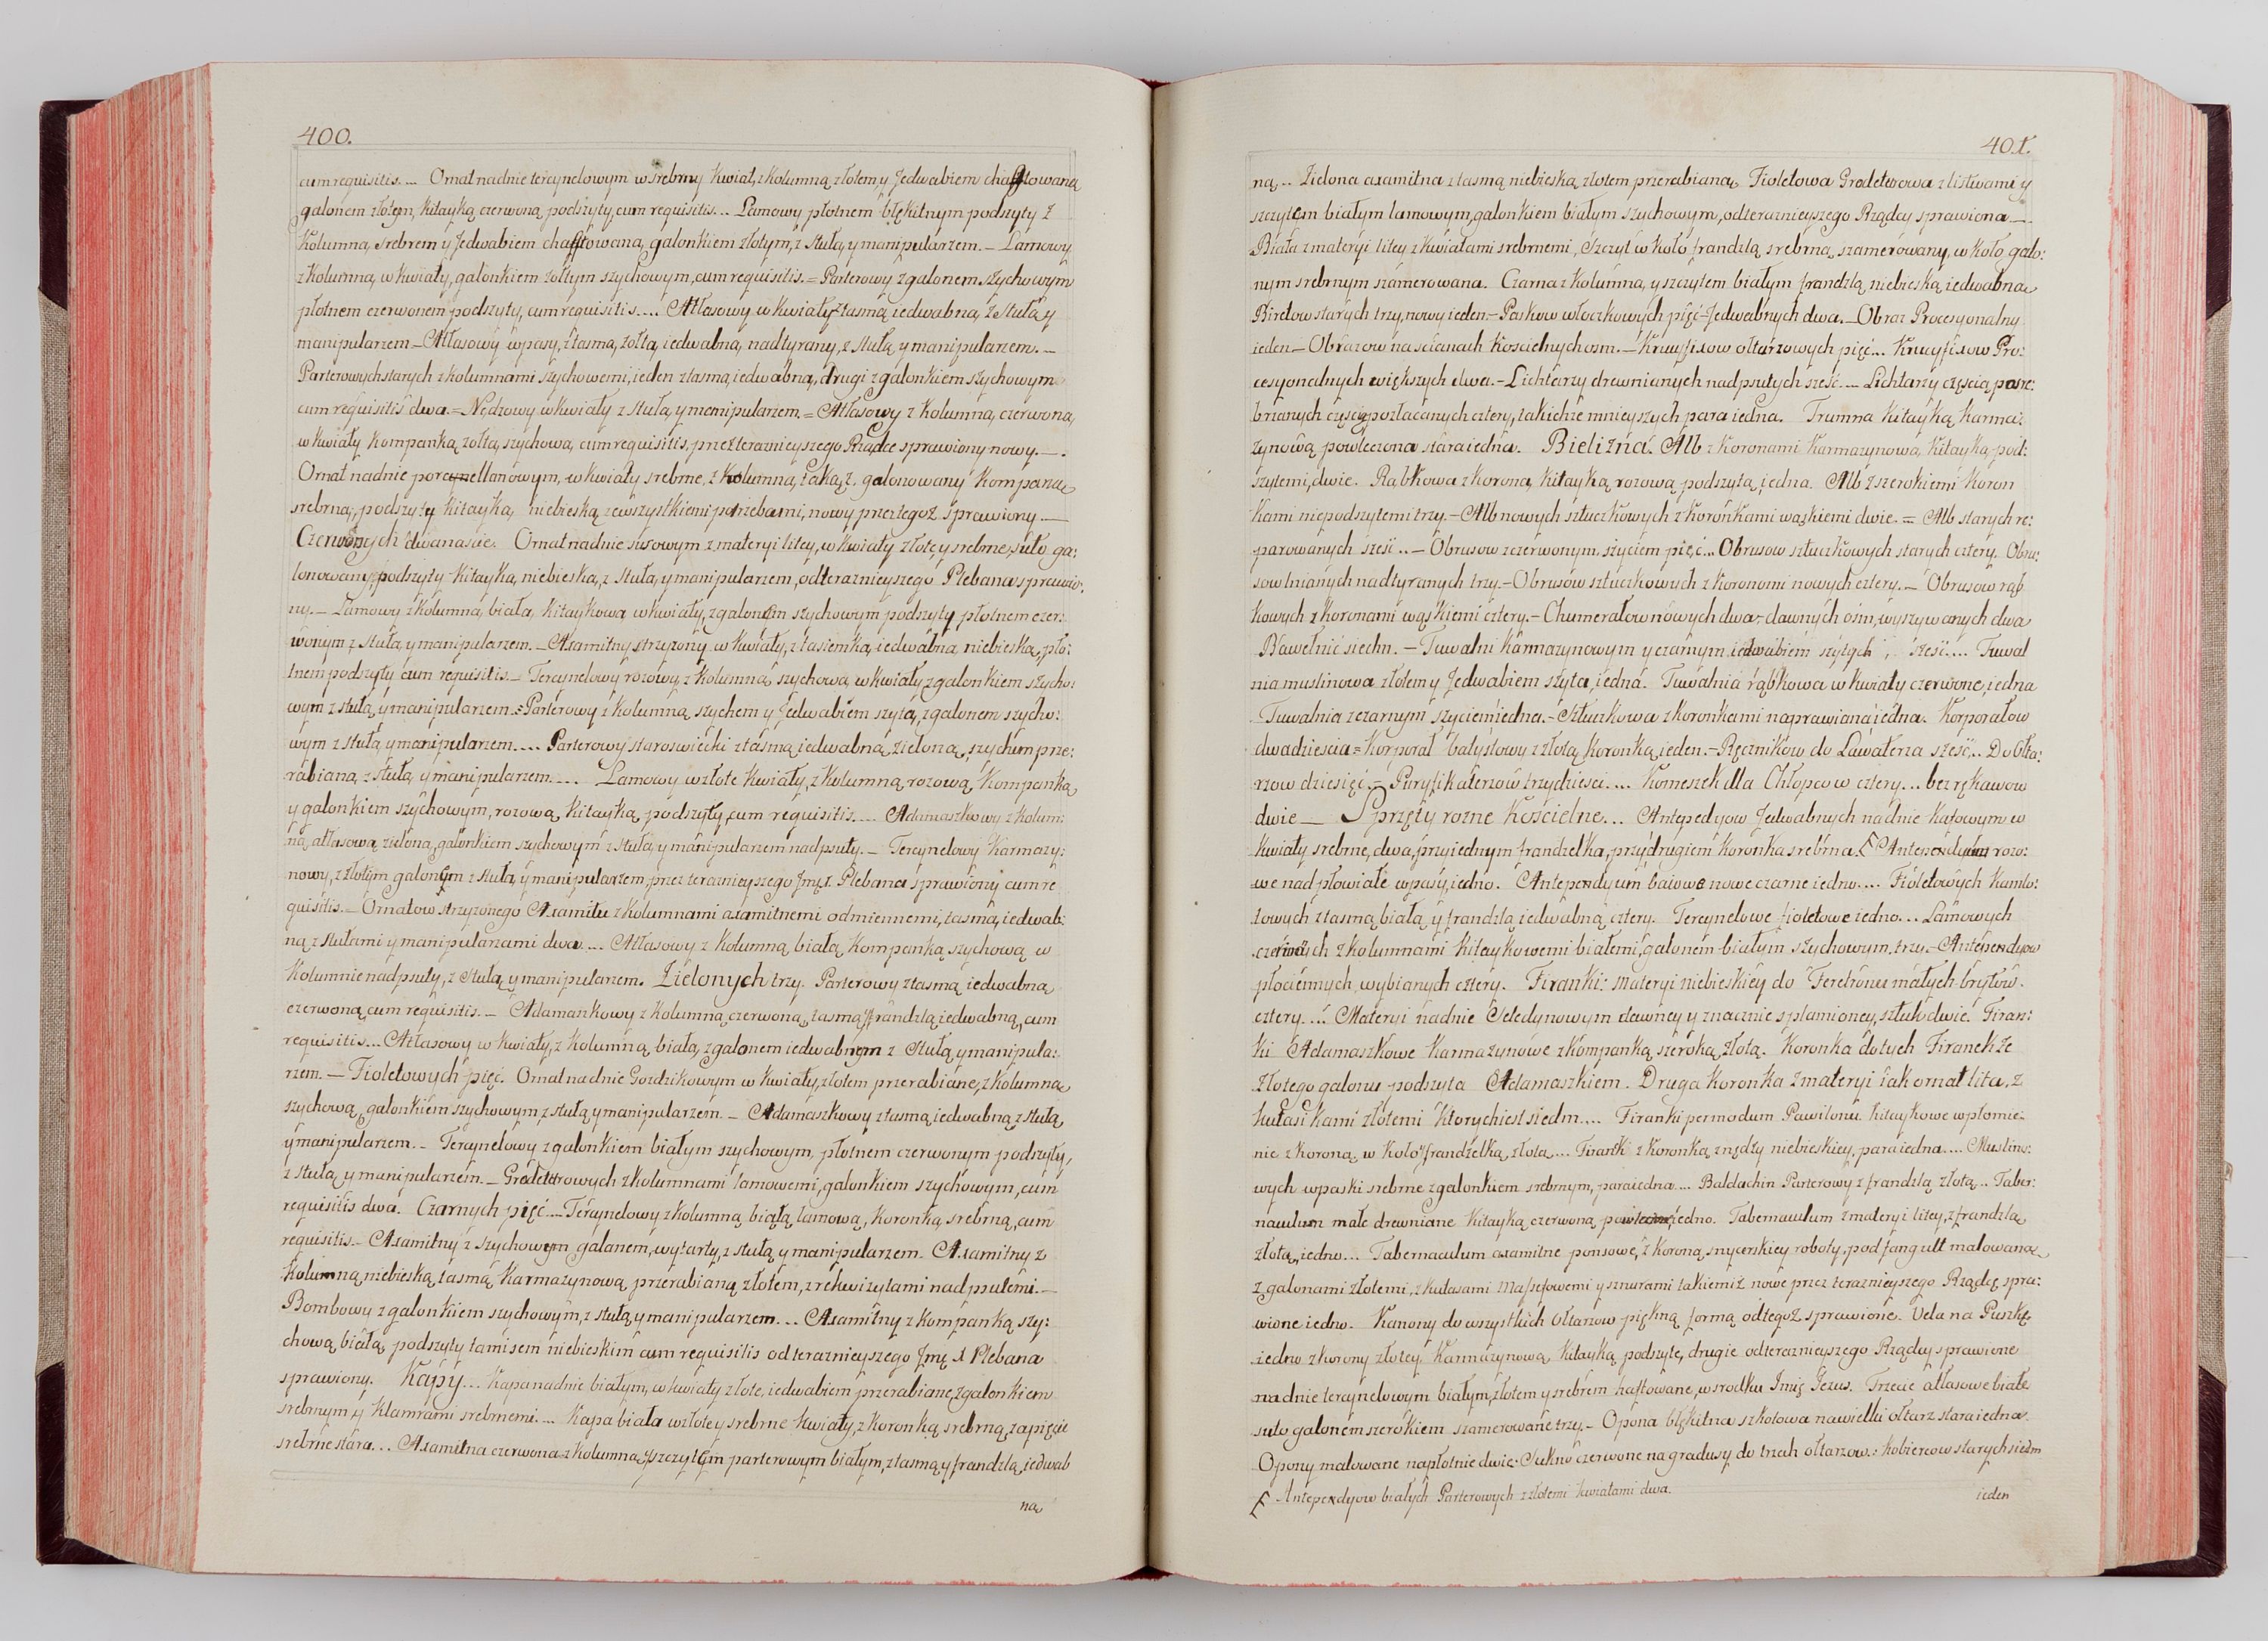 400.
cum requisitis.... Ornat nadnie tercynelowym w srebrny kwiat, z kolumną złotem, y Jedwabiem chaftowaną
galonem złotym, kitayką czerwoną, podszyty, cum requisitis... Lamowy płotnem błękitnym podszyty z
kolumną, srebrem y Jedwabiem chaftowaną, galonkiem złotym, z stułą, y manipularzem. — Lamowy
z kolumną, w kwiaty, galonkiem żołtym szychowym, cum requisitis. = Parterowy z galonem szychowym
płotnem czerwonem podszyty, cum requisitis.... Atłasowy w kwiaty z tasmą iedwabną, z stułą y
manipularzem — Atłasowy w pasy, z tasmą, żołtą, iedwabną, nadtyrany, z stułą y manipularzem. —
Parterowych starych z kolumnami szychowemi, ieden z tasmą, iedwabną, drugi z galonkiem szychowym
cum requisitis dwa. = Nędzowy w kwiaty z stułą, y manipularzem. = Atłasowy z kolumną, czerwoną,
w kwiaty kompanką żołtą, szychową, cum requisitis, przez teraznieyszego Rządce sprawiony nowy. — .
Ornat nadnie porcynellanowym, w kwiaty srebrne, z kolumną, taką z, galonowany kompaną
srebrną, podszyty kitayką, niebieską zewszystkiemi potrzebami, nowy przeztegoż sprawiony —
Czerwonych dwanascie. Ornat nadnie susowym z materyi litey, w kwiaty złote y srebrne, suto ga:
lonowany, podszyty kitayką, niebieską, z stułą, y manipularzem, od teraznieyszego Plebana sprawio:
ny. — Lamowy z kolumną, białą, kitaykową w kwiaty, z galonem szychowym podszyty płotnem czer:
wonym z stułą, y manipularzem. — Axamitny strzyżony w kwiaty, z tasiemką, iedwabną niebieską, pło:
tnem podszyty cum requisitis. — Tercynelowy rożowy, z kolumną szychową w kwiaty, z galonkiem szycho:
wym z stułą, y manipularzem. = Parterowy z kolumną szychem y Jedwabiem szytą, z galonem szycho:
wym z stułą y manipularzem.... Parterowy staroswiecki z tasmą iedwabną zieloną, szychem prze:
rabianą, z stułą, y manipularzem.... Lamowy w złote kwiaty, z kolumną rozową, kompanką
y galonkiem szychowym, rozową, kitayką, podszyty, cum requisitis.... Adamaszkowy z kolum:
ną, atłasową, zieloną, galonkiem szychowym z stułą, y manipularzem nadpsuty. — Tercynelowy karmazy:
nowy, z złotym galonem z stułą, y manipularzem, przez teraznieyszego Jmę X. Plebana sprawiony cum re
quisitis. — Ornatow strzyżonego Axamitu z kolumnami axamitnemi odmiennemi, tasmą, iedwab:
ną z stułami y manipularzami dwa.... Atłasowy z kolumną, białą, kompanką szychową w
kolumnie nadpsuty, z stułą y manipularzem. Zielonych trzy. Parterowy z tasmą iedwabną
czerwoną, cum requisitis. — Adamaszkowy z kolumną czerwoną, tasmą, y frandzlą iedwabną, cum
requisitis... Atłasowy w kwiaty, z kolumną białą, z galonem iedwabnym z stułą, y manipula:
rzem. — Fioletowych pięć. Ornat nadnie Gozdzikowym w kwiaty, złotem przerabiane, z kolumną
szychową, galonkiem szychowym, z stułą y manipularzem. — Adamaszkowy z tasmą iedwabną z stułą
y manipularzem. — Tercynelowy z galonkiem białym szychowym, płotnem czerwonym podszyty,
z stułą y manipularzem. — Gredeterowych z kolumnami lamowemi, galonkiem szychowym, cum
requisitis dwa. Czarnych pięć — Tercynelowy z kolumną białą, lamową, koronką srebrną, cum
requisitis. — Axamitny z szychowym galanem, wytarty, z stułą y manipularzem. Axamitny z
kolumną niebieską tasmą karmazynową, przerabianą złotem, z rekwizytami nadpsutemi. —
Bombowy z galonkiem szychowym, z stułą, y manipularzem... Axamitny z kompanką szy:
chową, białą, podszyty tamisem niebieskim cum requisitis od teraznieyszego Jmę X Plebana
sprawiony. Kapy... Kapa nadnie białym, w kwiaty złote, iedwabiem przerabiane, z galonkiem
srebrnym y klamrami srebrnemi.... Kapa biała w złote y srebrne kwiaty, z koronką srebrną, zapięcie
srebrne stara... Axamitna czerwona z kolumną, y szczytem parterowym białym, z tasmą y frandzlą, iedwab
na
401.
na... Zielona axamitna z tasmą niebieską złotem przerabianą. Fioletowa Grodeterowa z listwami y
szczytem białym lamowym, galonkiem białym szychowym, od teraznieyszego Rządcy sprawiona —
Biała z materyi litey z kwiatami srebrnemi, szczyt w koło frandzlą srebrną, szamerowany, w koło galo:
nym srebrnym szamerowana. Czarna z kolumną, y szczytem białym frandzlą, niebieską iedwabną
Biretow starych trzy, nowy ieden. — Paskow włoczkowych pięć — Jedwabnych dwa. — Obraz Procesyonalny
ieden — Obrazow na scianach koscielnych osm. — Krucyfixow ołtarzowych pięć... Krucyfixow Pro:
cesyonalnych większych dwa. — Lichtarzy drewnianych nadpsutych sześć.... Lichtarzy częścią posre:
brzanych częścią pozłacanych cztery, takichże mnieyszych para iedna. Trumna kitayką, karma:
zynową powleczona stara iedna. Bielizna. Alb z koronami karmazynową, kitayką pod:
szytemi, dwie. Rąbkowa z koroną, kitayką rozową podszyta, iedna. Alb z szerokiemi koron
kami niepodszytemi trzy. — Alb nowych sztuczkowych z koronkami wąskiemi dwie. = Alb starych re:
parowanych sześć... — Obrusow z czerwonym szyciem pięć... Obrusow sztuczkowych starych cztery. Obru:
sow lnianych nadtyranych trzy. — Obrusow sztuczkowych z koronomi nowych cztery. — Obrusow rąb
kowych z koronami wąskiemi cztery. — Chumerałow nowych dwa — dawnych osm, wyszywanych dwa
Bawełnic siedm. — Tuwalni karmazynowym y czarnym iedwabiem szytych, sześć.... Tuwal
nia muslinowa złotem y Jedwabiem szyta, iedna. Tuwalnia rąbkowa w kwiaty czerwone, iedna
Tuwalnia z czarnym szyciem iedna. — Sztuczkowa z koronkami naprawiana iedna. Korporałow
dwadziescia = Korporał batystowy z złotą koronką ieden. — Ręcznikow do Lawaterza sześć... Do Ołta:
rzow dziesięć. — Puryfikaterzow trzydziesci.... Komeszek dla Chłopcow cztery... bez rękawow
dwie — Sprzęty rozne koscielne... Antepedyow Jedwabnych nadnie kafowym w
kwiaty srebrne, dwa, przy iednym frandzelka, przy drugiem koronka srebrna. [ Antependyum rozo:
we nadpłowiałe w pasy, iedno. Antependyum baiowe nowe czarne iedno.... Fioletowych kamlo:
towych z tasmą białą y frandzlą iedwabną cztery. Tercynelowe fioletowe iedno... Lamowych
czarnych z kolumnami kitaykowemi białemi, galonem białym szychowym, trzy. — Antependyow
płociennych, wybianych cztery. Firanki: Materyi niebieskiey do Feretronu małych brytow.
cztery.... Materyi nadnie Seledynowym dawney y znacznie splamioney, sztuk dwie. Firan:
ki Adamaszkowe karmazynowe z kompanką szeroką, złotą. Koronka do tych Firanek ze
złotego galonu podszyta Adamaszkiem. Druga koronka z materyi iak ornat lita, z
kutasikami złotemi ktorych iest siedm.... Firanki per modum Pawilonu kitaykowe w płomie:
nie z koroną, w koło frandzelką, złotą.... Firanki z koronką z nędzy niebieskiey, para iedna.... Muslino:
wych w paski srebrne z galonkiem srebrnym, para iedna.... Baldachin Parterowy z frandzlą złotą... Taber:
naculum małe drewniane kitayką czerwoną, powleczone, iedno. Tabernaculum z materyi litey, z frandzlą
złotą, iedno... Tabernaculum axamitne ponsowe, z koroną, snycerskiey roboty, pod fangult malowaną
z galonami złotemi, z kutasami massefowemi y sznurami takiemiż nowe przez teraznieyszego Rządcę spra:
wione iedno. Kanony do wszystkich ołtarzow piękną formą od tegoż sprawione. Vela na Puszkę
iedno z korony złotey karmazynową kitayką podszyte, drugie od teraznieyszego Rządcy sprawione
nadnie tercynelowym białym, złotem y srebrem haftowane, w srodku Imię Jezus. Trzecie atłasowe białe
suto galonem szerokiem szamerowane trzy. — Opona błękitna szkotowa na wielki ołtarz stara iedna.
Opony malowane na płotnie dwie. Sukno czerwone na gradusy do trzech ołtarzow. Kobiercow starych siedm
[ Antependyow białych Parterowych z złotemi kwiatami dwa.
ieden